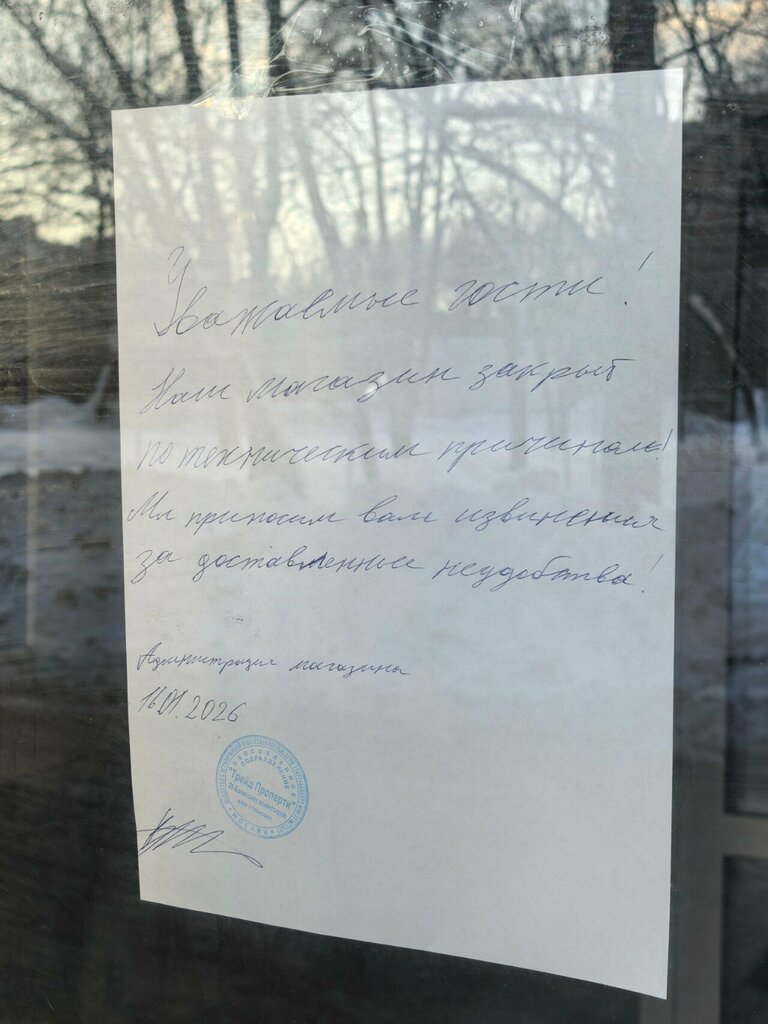 Уважаемые гости!
Наш магазин закрыт
по техническим причинам!
Мы приносим вам извинения
за доставленные неудобства!
Администрация магазина
16.01.2026
ОБОСОБЛЕННОЕ
ПОДРАЗДЕЛЕНИЕ
"Трейд Проперти"
МОСКВА